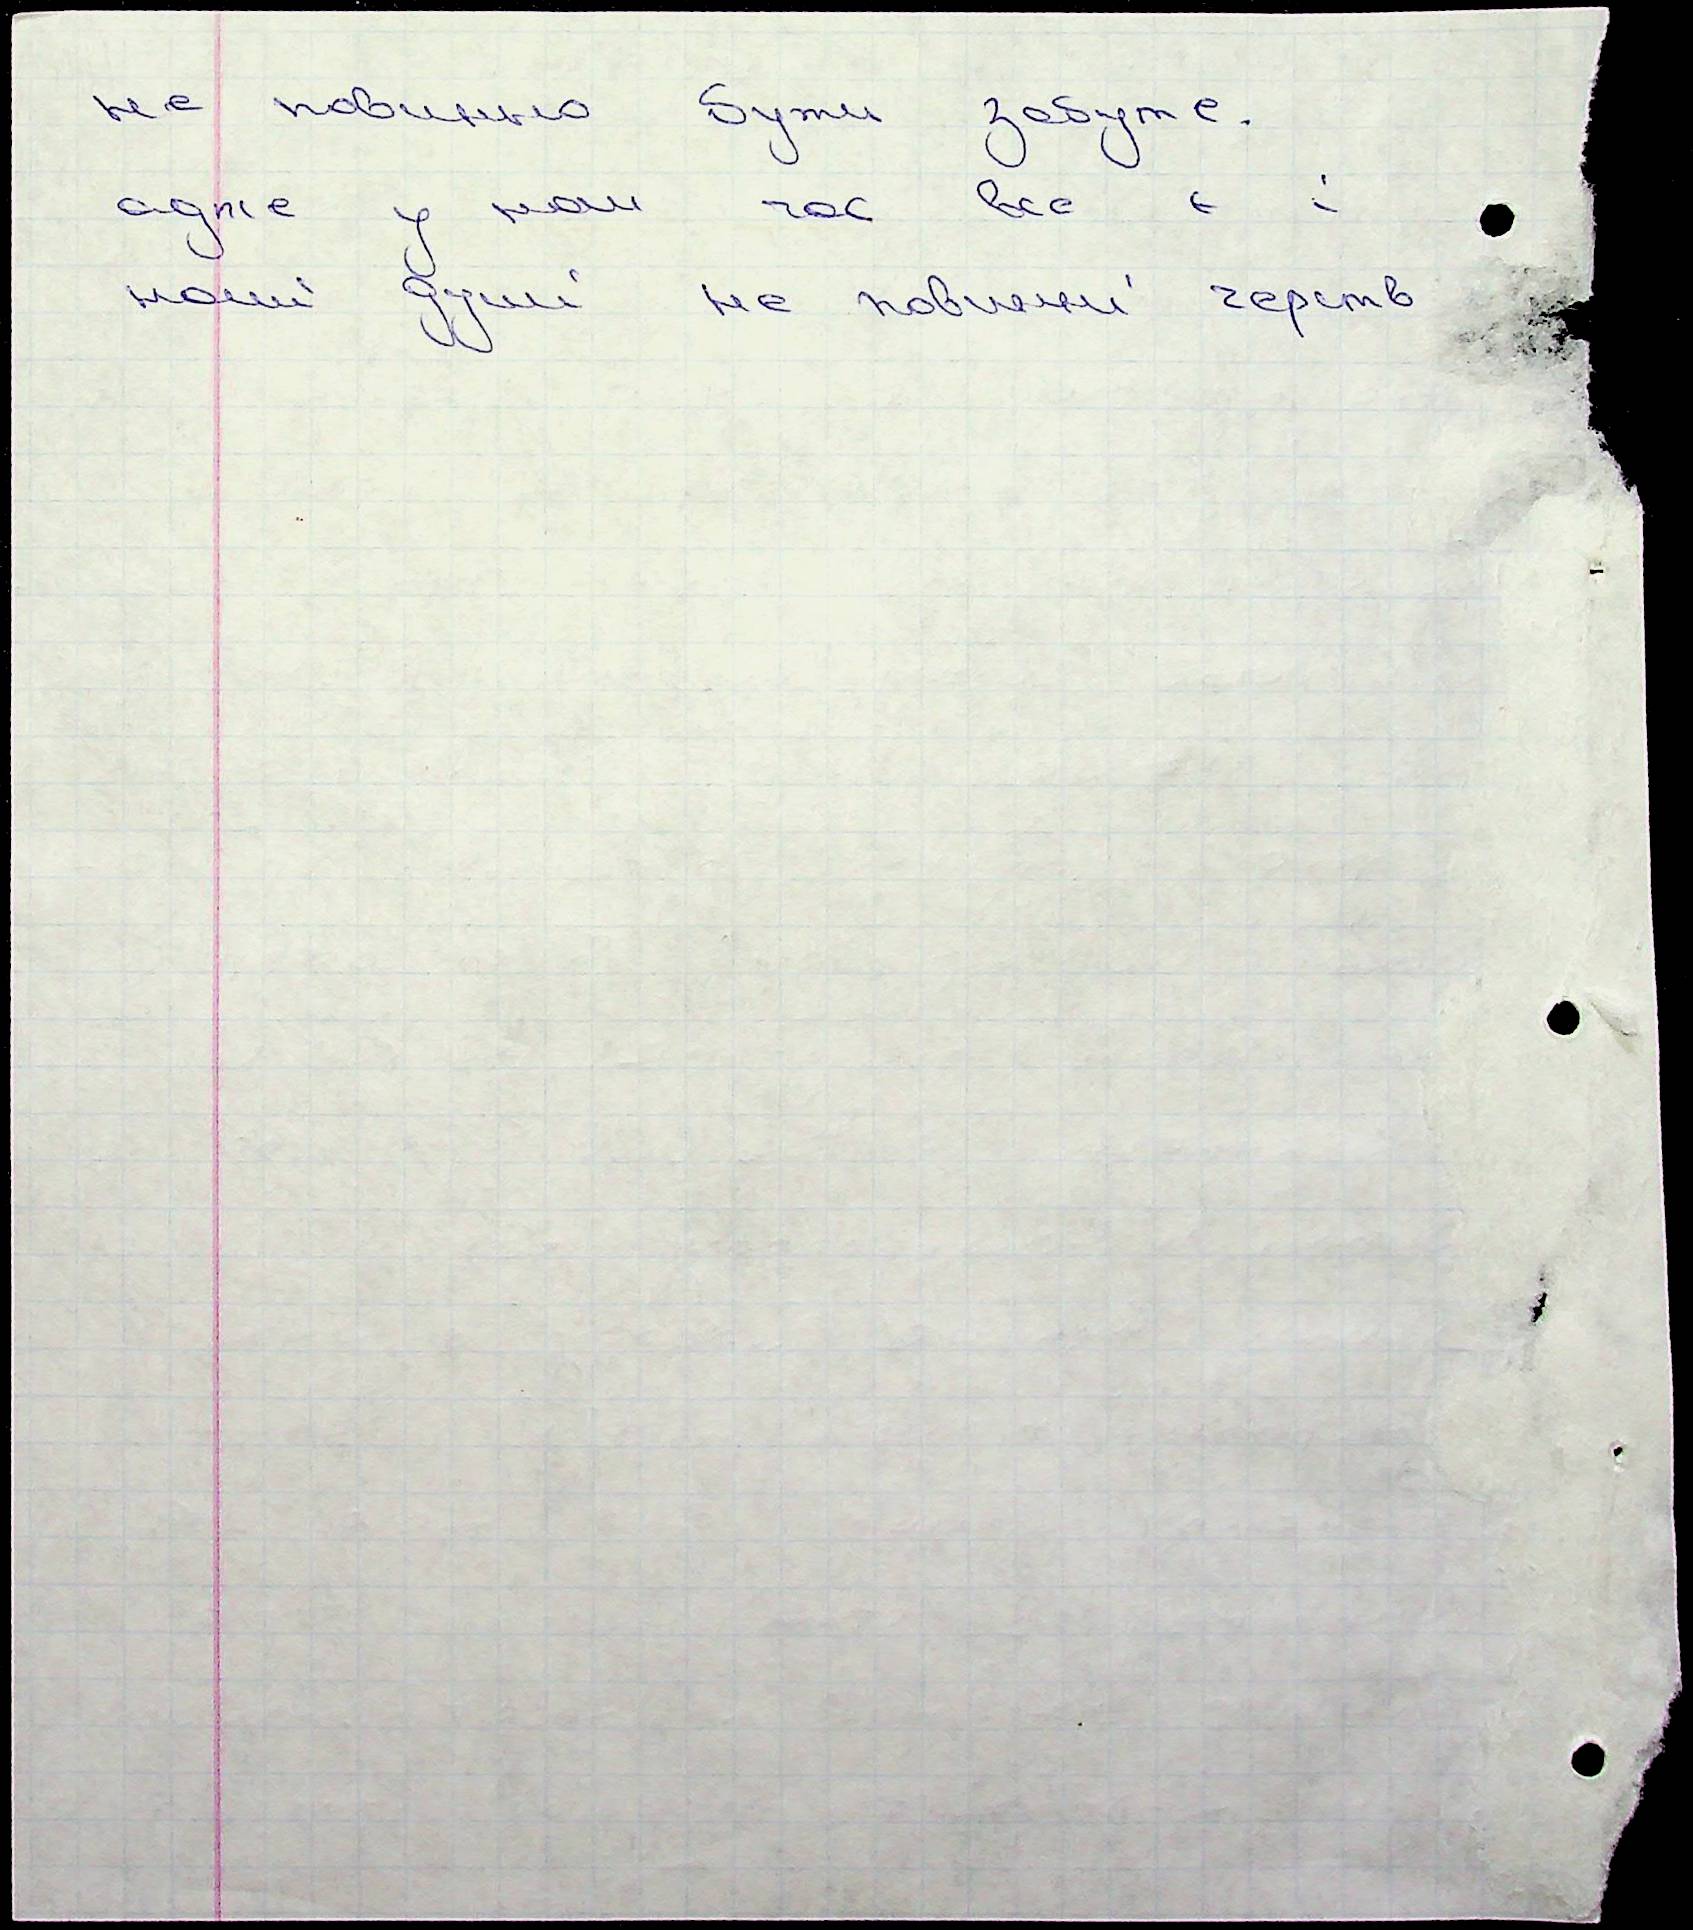 не повинно бути забуте.
адже у наш час все є і
наші душі не повинні черств